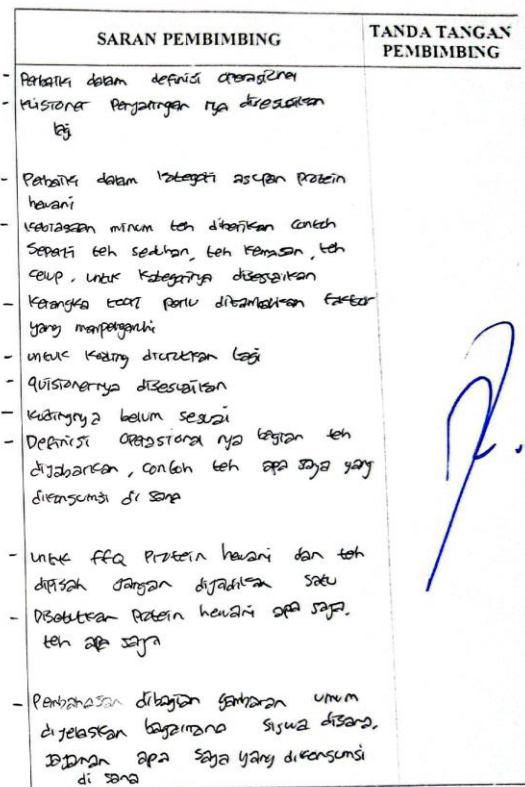 SARAN PEMBIMBING
TANDA TANGAN
PEMBIMBING
- Perbaiki dalam definisi operasional
- Kuisioner Penjaringan nya disesuaikan
lagi
- Perbaiki dalam kategori asupan Protein
hewani
- Kebiasaan minum teh diberikan contoh
Seperti teh seduhan, teh kemasan, teh
celup, untuk kategorinya disesuaikan
- Kerangka teori perlu ditambahkan faktor
yang mempengaruhi
- untuk koding diurutkan lagi
- quisionernya disesuaikan
- kodingnya belum sesuai
- Definisi Operasional nya bagian teh
dijabarkan, contoh teh apa saja yang
dikonsumsi di sana
- untuk FFQ Protein hewani dan teh
dipisah jangan dijadikan satu
- Disebutkan Protein hewani apa saja,
teh apa saja
- Pembahasan dibagian gambaran umum
dijelaskan bagaimana siswa disana,
Jajanan apa saja yang dikonsumsi
di sana